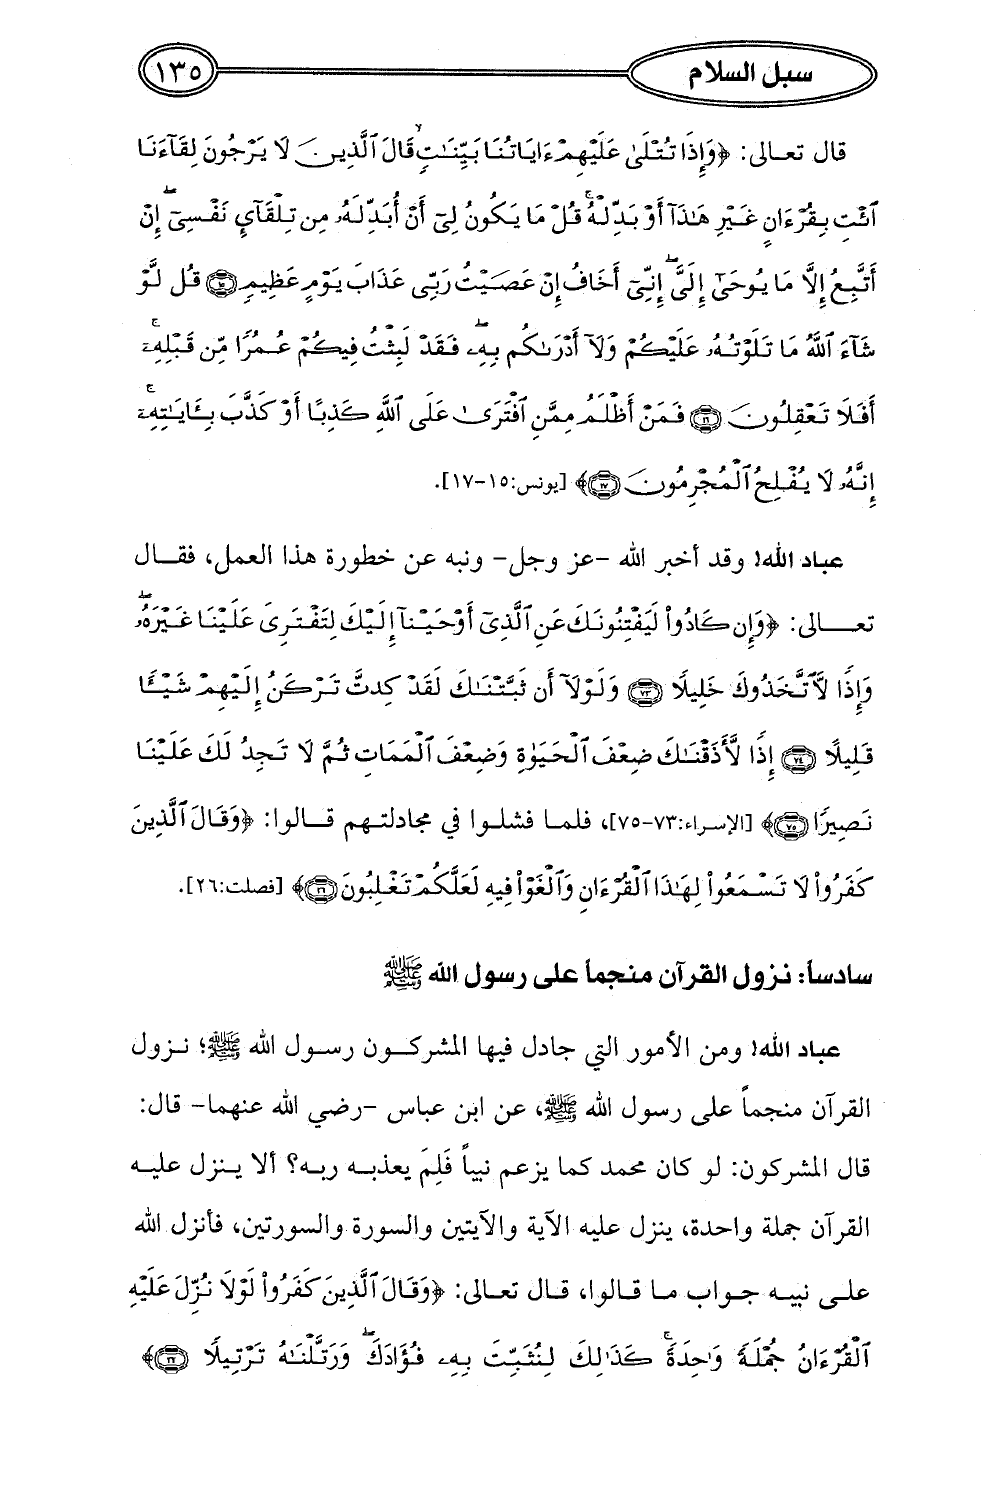 سبل السلام ١٣٥
قال تعالى: ﴿وَإِذَا تُتْلَىٰ عَلَيْهِمْ ءَايَاتُنَا بَيِّنَاتٍ قَالَ ٱلَّذِينَ لَا يَرْجُونَ لِقَآءَنَا
ٱئْتِ بِقُرْءَانٍ غَيْرِ هَٰذَآ أَوْ بَدِّلْهُ ۚ قُلْ مَا يَكُونُ لِىٓ أَنْ أُبَدِّلَهُۥ مِن تِلْقَآئِ نَفْسِىٓ ۖ إِنْ
أَتَّبِعُ إِلَّا مَا يُوحَىٰٓ إِلَىَّ ۖ إِنِّىٓ أَخَافُ إِنْ عَصَيْتُ رَبِّى عَذَابَ يَوْمٍ عَظِيمٍ ١٥ قُل لَّوْ
شَآءَ ٱللَّهُ مَا تَلَوْتُهُۥ عَلَيْكُمْ وَلَآ أَدْرَىٰكُم بِهِۦ ۖ فَقَدْ لَبِثْتُ فِيكُمْ عُمُرًا مِّن قَبْلِهِۦٓ ۚ
أَفَلَا تَعْقِلُونَ ١٦ فَمَنْ أَظْلَمُ مِمَّنِ ٱفْتَرَىٰ عَلَى ٱللَّهِ كَذِبًا أَوْ كَذَّبَ بِـَٔايَٰتِهِۦٓ ۚ
إِنَّهُۥ لَا يُفْلِحُ ٱلْمُجْرِمُونَ ١٧﴾ [يونس:١٥-١٧].
عباد الله! وقد أخبر الله -عز وجل- ونبه عن خطورة هذا العمل، فقال
تعالى: ﴿وَإِن كَادُوا۟ لَيَفْتِنُونَكَ عَنِ ٱلَّذِىٓ أَوْحَيْنَآ إِلَيْكَ لِتَفْتَرِىَ عَلَيْنَا غَيْرَهُۥ ۖ
وَإِذًا لَّٱتَّخَذُوكَ خَلِيلًا ٧٣ وَلَوْلَآ أَن ثَبَّتْنَٰكَ لَقَدْ كِدتَّ تَرْكَنُ إِلَيْهِمْ شَيْـًٔا
قَلِيلًا ٧٤ إِذًا لَّأَذَقْنَٰكَ ضِعْفَ ٱلْحَيَوٰةِ وَضِعْفَ ٱلْمَمَاتِ ثُمَّ لَا تَجِدُ لَكَ عَلَيْنَا
نَصِيرًا ٧٥﴾ [الإسراء:٧٣-٧٥]، فلما فشلوا في مجادلتهم قالوا: ﴿وَقَالَ ٱلَّذِينَ
كَفَرُوا۟ لَا تَسْمَعُوا۟ لِهَٰذَا ٱلْقُرْءَانِ وَٱلْغَوْا۟ فِيهِ لَعَلَّكُمْ تَغْلِبُونَ ٢٦﴾ [فصلت:٢٦].
سادساً: نزول القرآن منجماً على رسول الله ﷺ
عباد الله! ومن الأمور التي جادل فيها المشركون رسول الله ﷺ؛ نزول
القرآن منجماً على رسول الله ﷺ، عن ابن عباس -رضي الله عنهما- قال:
قال المشركون: لو كان محمد كما يزعم نبياً فَلِمَ يعذبه ربه؟ ألا ينزل عليه
القرآن جملة واحدة، ينزل عليه الآية والآيتين والسورة والسورتين، فأنزل الله
على نبيه جواب ما قالوا، قال تعالى: ﴿وَقَالَ ٱلَّذِينَ كَفَرُوا۟ لَوْلَا نُزِّلَ عَلَيْهِ
ٱلْقُرْءَانُ جُمْلَةً وَٰحِدَةً ۚ كَذَٰلِكَ لِنُثَبِّتَ بِهِۦ فُؤَادَكَ ۖ وَرَتَّلْنَٰهُ تَرْتِيلًا ٣٢﴾